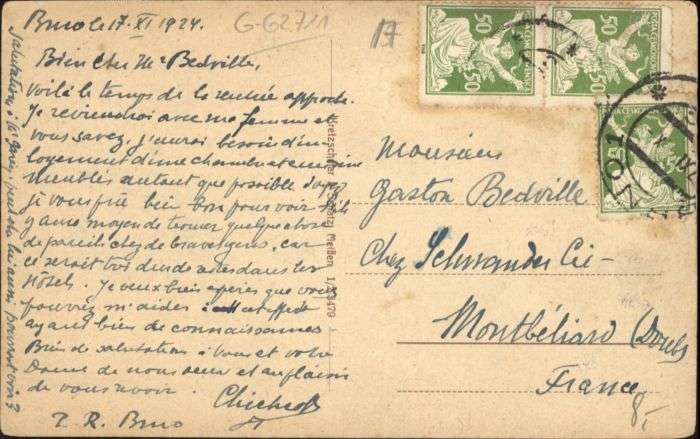 Brno le 17. XI 1924.
G-62711
17
Bien Cher Mr Bedville,
Voilà le temps de la rentrée approche.
Je reviendrai avec ma femme et
vous savez, j'aurai besoin d'un
logement d'une chambre et cuisine
meublés autant que possible
je vous prie bien bon pour voir s'il
y a un moyen de trouver quelque chose
de pareil chez de braves gens, car
ce serait très dur de vivre dans les
Hôtels. Je veux bien espérer que vous
pourrez m'aider à cet effet
ayant bien de connaissances
Bien de salutations à Vous et votre
Dame de nous deux et au plaisir
de vous revoir.
P. R. Brno
Salutations à
Kretzschmar & Schatz, Meißen 1/23479
50
50
50
50
POŠTA ČESKOSLOVENSKÁ
Monsieur
Gaston Bedville
Chez Schwander Cie
Montbéliard (Doubs)
France
8,-